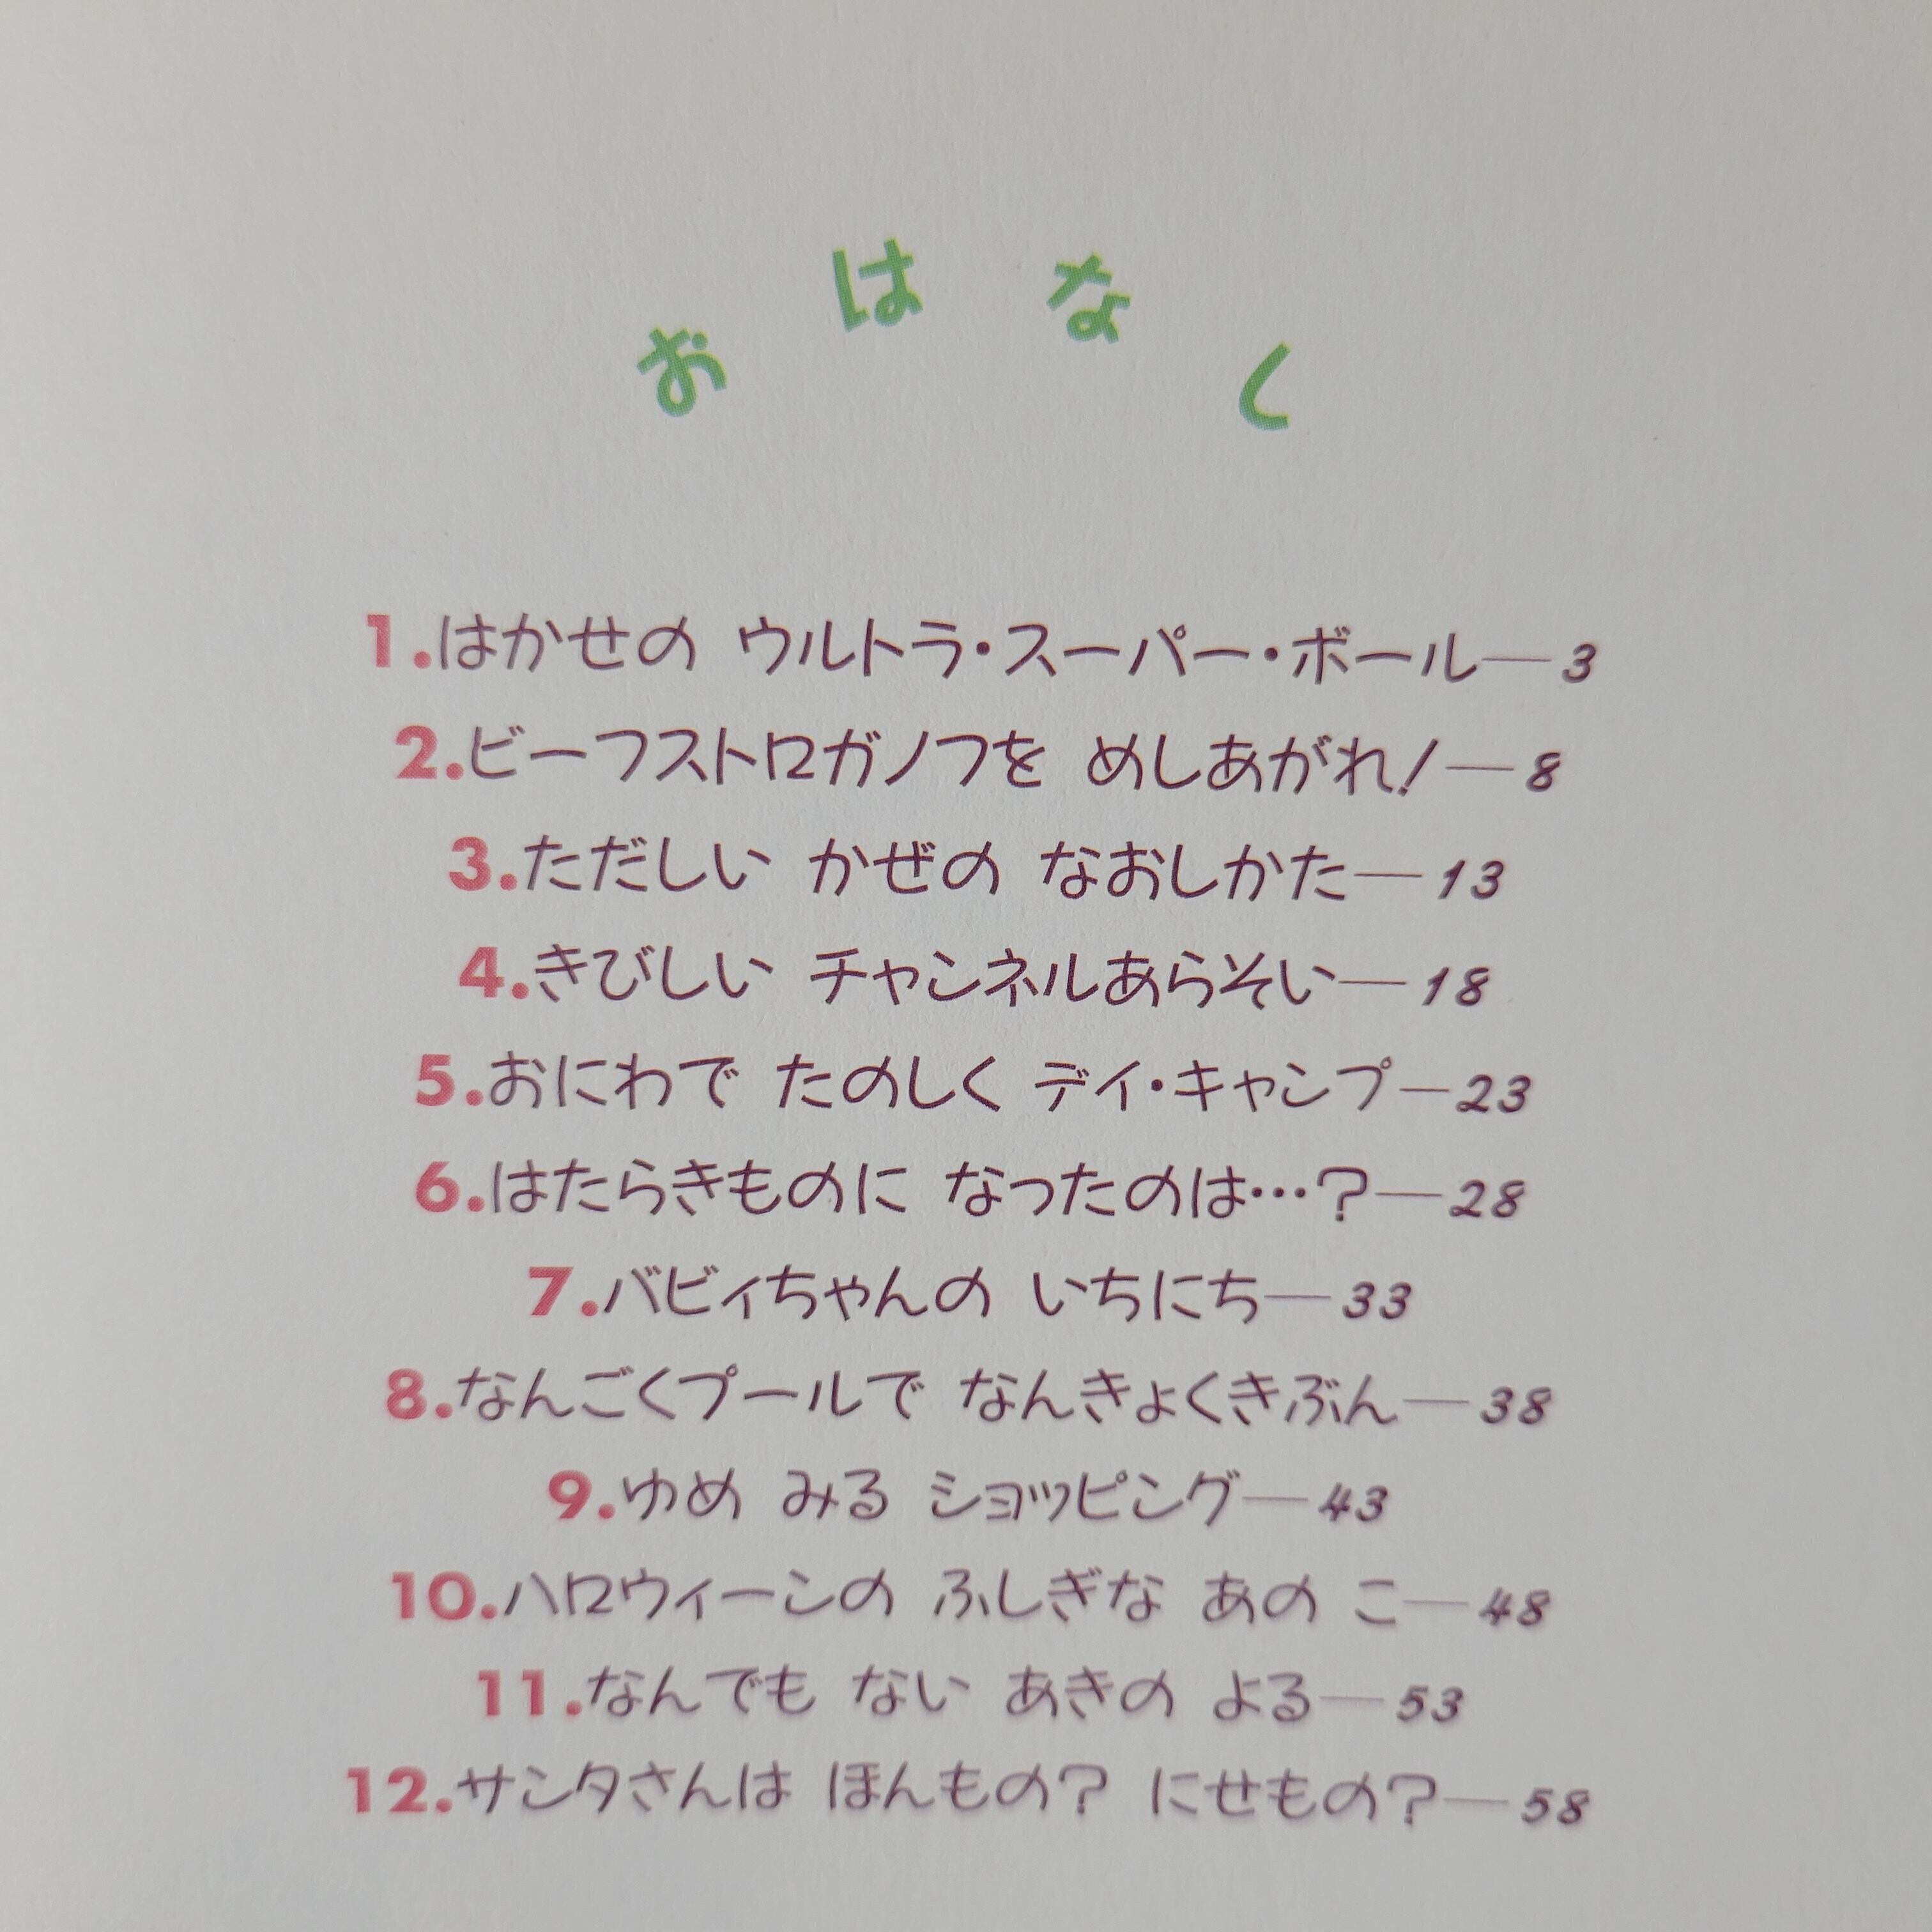 おはなし
1.はかせの ウルトラ・スーパー・ボール—3
2.ビーフストロガノフを めしあがれ!—8
3.ただしい かぜの なおしかた—13
4.きびしい チャンネルあらそい—18
5.おにわで たのしく デイ・キャンプ—23
6.はたらきものに なったのは…?—28
7.バビィちゃんの いちにち—33
8.なんごくプールで なんきょくきぶん—38
9.ゆめ みる ショッピング—43
10.ハロウィーンの ふしぎな あの こ—48
11.なんでも ない あきの よる—53
12.サンタさんは ほんもの? にせもの?—58